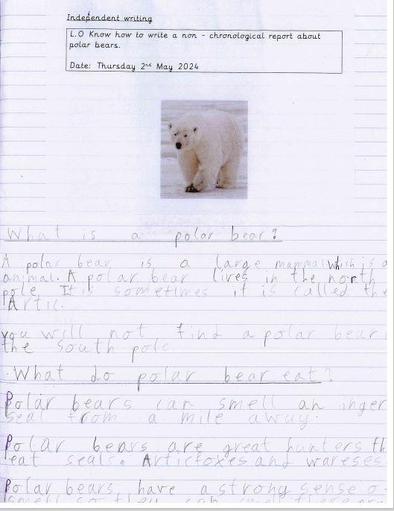 Independent writing
L.O Know how to write a non - chronological report about
polar bears.
Date: Thursday 2nd May 2024
What is a polar bear?
A polar bear is a large mammal which is a
animal. A polar bear lives in the north
pole. It is sometimes it is called the
Artic.
you will not find a polar bear i
the South pole
What do polar bear eat?
Polar bears can smell an inger
seal from a mile away.
Polar bears are great hunters th
eat seals. Articfoxes and wareses
Polar bears have a strong sense o
smell so they can smell there